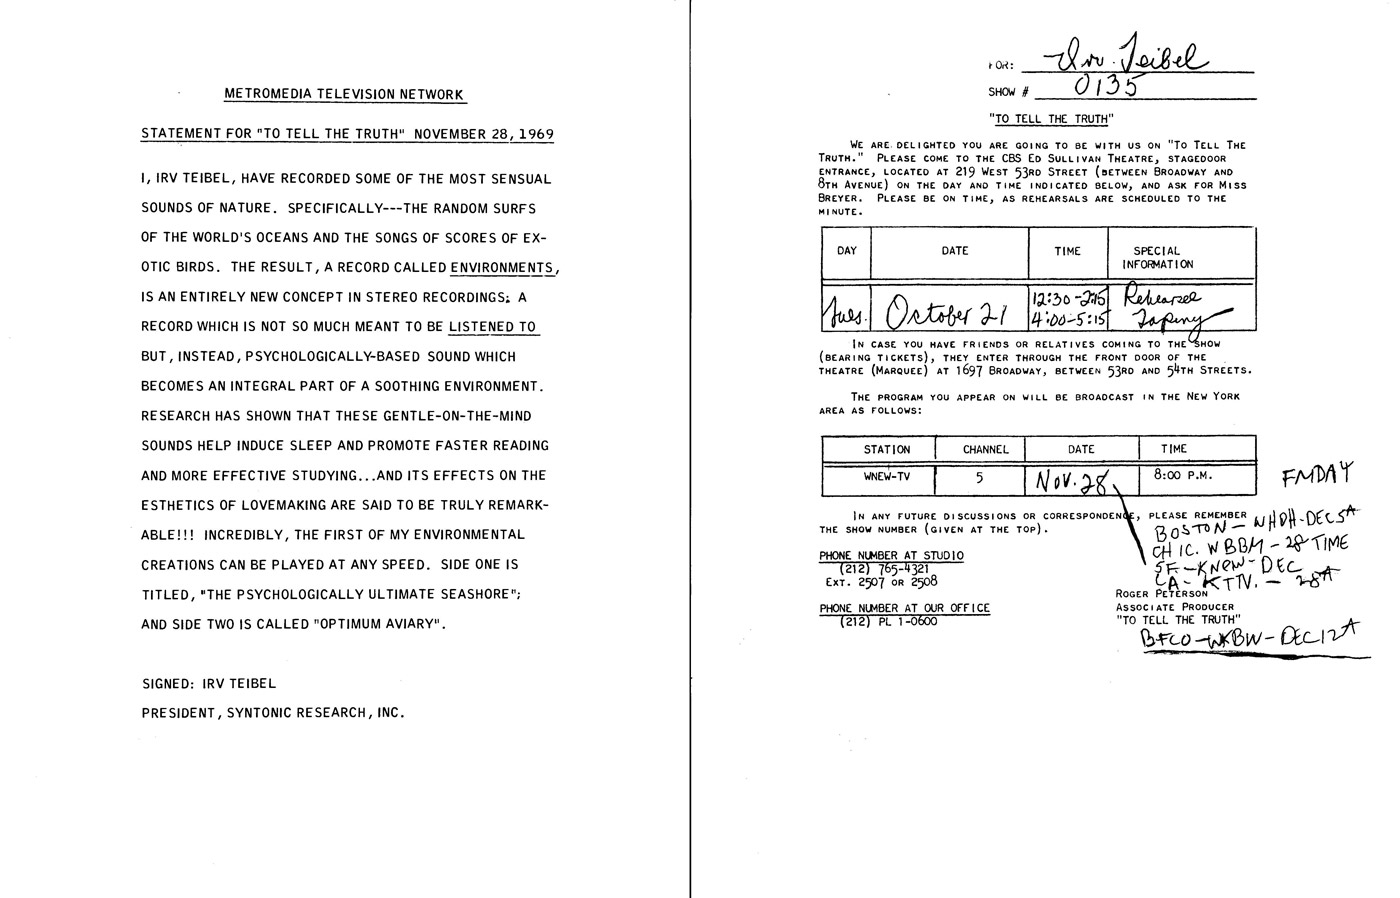 METROMEDIA TELEVISION NETWORK
STATEMENT FOR "TO TELL THE TRUTH" NOVEMBER 28, 1969
I, IRV TEIBEL, HAVE RECORDED SOME OF THE MOST SENSUAL
SOUNDS OF NATURE. SPECIFICALLY---THE RANDOM SURFS
OF THE WORLD'S OCEANS AND THE SONGS OF SCORES OF EX-
OTIC BIRDS. THE RESULT, A RECORD CALLED ENVIRONMENTS,
IS AN ENTIRELY NEW CONCEPT IN STEREO RECORDINGS; A
RECORD WHICH IS NOT SO MUCH MEANT TO BE LISTENED TO
BUT, INSTEAD, PSYCHOLOGICALLY-BASED SOUND WHICH
BECOMES AN INTEGRAL PART OF A SOOTHING ENVIRONMENT.
RESEARCH HAS SHOWN THAT THESE GENTLE-ON-THE-MIND
SOUNDS HELP INDUCE SLEEP AND PROMOTE FASTER READING
AND MORE EFFECTIVE STUDYING...AND ITS EFFECTS ON THE
ESTHETICS OF LOVEMAKING ARE SAID TO BE TRULY REMARK-
ABLE!!! INCREDIBLY, THE FIRST OF MY ENVIRONMENTAL
CREATIONS CAN BE PLAYED AT ANY SPEED. SIDE ONE IS
TITLED, "THE PSYCHOLOGICALLY ULTIMATE SEASHORE";
AND SIDE TWO IS CALLED "OPTIMUM AVIARY".
SIGNED: IRV TEIBEL
PRESIDENT, SYNTONIC RESEARCH, INC.
FOR: Irv. Teibel
SHOW # 0135
"TO TELL THE TRUTH"
WE ARE DELIGHTED YOU ARE GOING TO BE WITH US ON "TO TELL THE
TRUTH." PLEASE COME TO THE CBS ED SULLIVAN THEATRE, STAGEDOOR
ENTRANCE, LOCATED AT 219 WEST 53RD STREET (BETWEEN BROADWAY AND
8TH AVENUE) ON THE DAY AND TIME INDICATED BELOW, AND ASK FOR MISS
BREYER. PLEASE BE ON TIME, AS REHEARSALS ARE SCHEDULED TO THE
MINUTE.
DAY DATE TIME SPECIAL
INFORMATION
Tues. October 21 12:30-2:15 Rehearsal
4:00-5:15 Taping
IN CASE YOU HAVE FRIENDS OR RELATIVES COMING TO THE SHOW
(BEARING TICKETS), THEY ENTER THROUGH THE FRONT DOOR OF THE
THEATRE (MARQUEE) AT 1697 BROADWAY, BETWEEN 53RD AND 54TH STREETS.
THE PROGRAM YOU APPEAR ON WILL BE BROADCAST IN THE NEW YORK
AREA AS FOLLOWS:
STATION CHANNEL DATE TIME
WNEW-TV 5 NOV. 28 8:00 P.M.
FRIDAY
IN ANY FUTURE DISCUSSIONS OR CORRESPONDENCE, PLEASE REMEMBER
THE SHOW NUMBER (GIVEN AT THE TOP).
BOSTON - WHDH - DEC 5
CHIC. WBBM - 28 TIME
SF - KNEW - DEC
LA - KTTV. - 28
PHONE NUMBER AT STUDIO
(212) 765-4321
EXT. 2507 OR 2508
PHONE NUMBER AT OUR OFFICE
(212) PL 1-0600
ROGER PETERSON
ASSOCIATE PRODUCER
"TO TELL THE TRUTH"
BFLO - WKBW - DEC 12